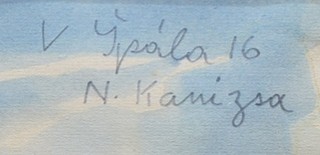 V Špála 16
N. Kanizsa